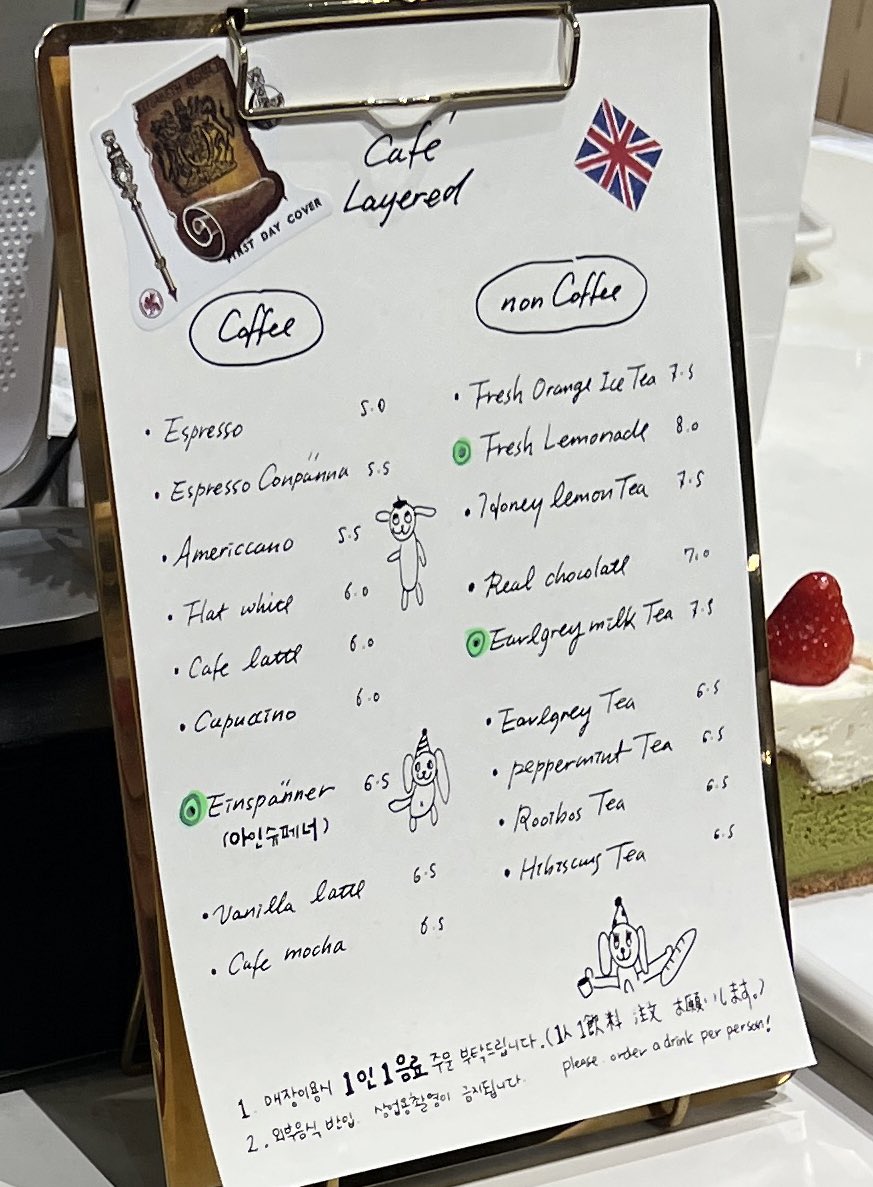 FIRST DAY COVER
Café
Layered
Coffee
• Espresso 5.0
• Espresso Conpänna 5.5
• Americcano 5.5
• Flat white 6.0
• Cafe latte 6.0
• Capuccino 6.0
Einspänner 6.5
(아인슈페너)
• Vanilla latte 6.5
• Cafe mocha 6.5
non Coffee
• Fresh Orange Ice Tea 7.5
Fresh Lemonade 8.0
• Honey lemon Tea 7.5
• Real chocolate 7.0
Earlgrey milk Tea 7.5
• Earlgrey Tea 6.5
• peppermint Tea 6.5
• Rooibos Tea 6.5
• Hibiscus Tea 6.5
1. 매장이용시 1인 1음료 주문 부탁드립니다. (1人 1飲料 注文 お願いします。)
2. 외부음식 반입. 상업용촬영이 금지됩니다. please. order a drink per person!